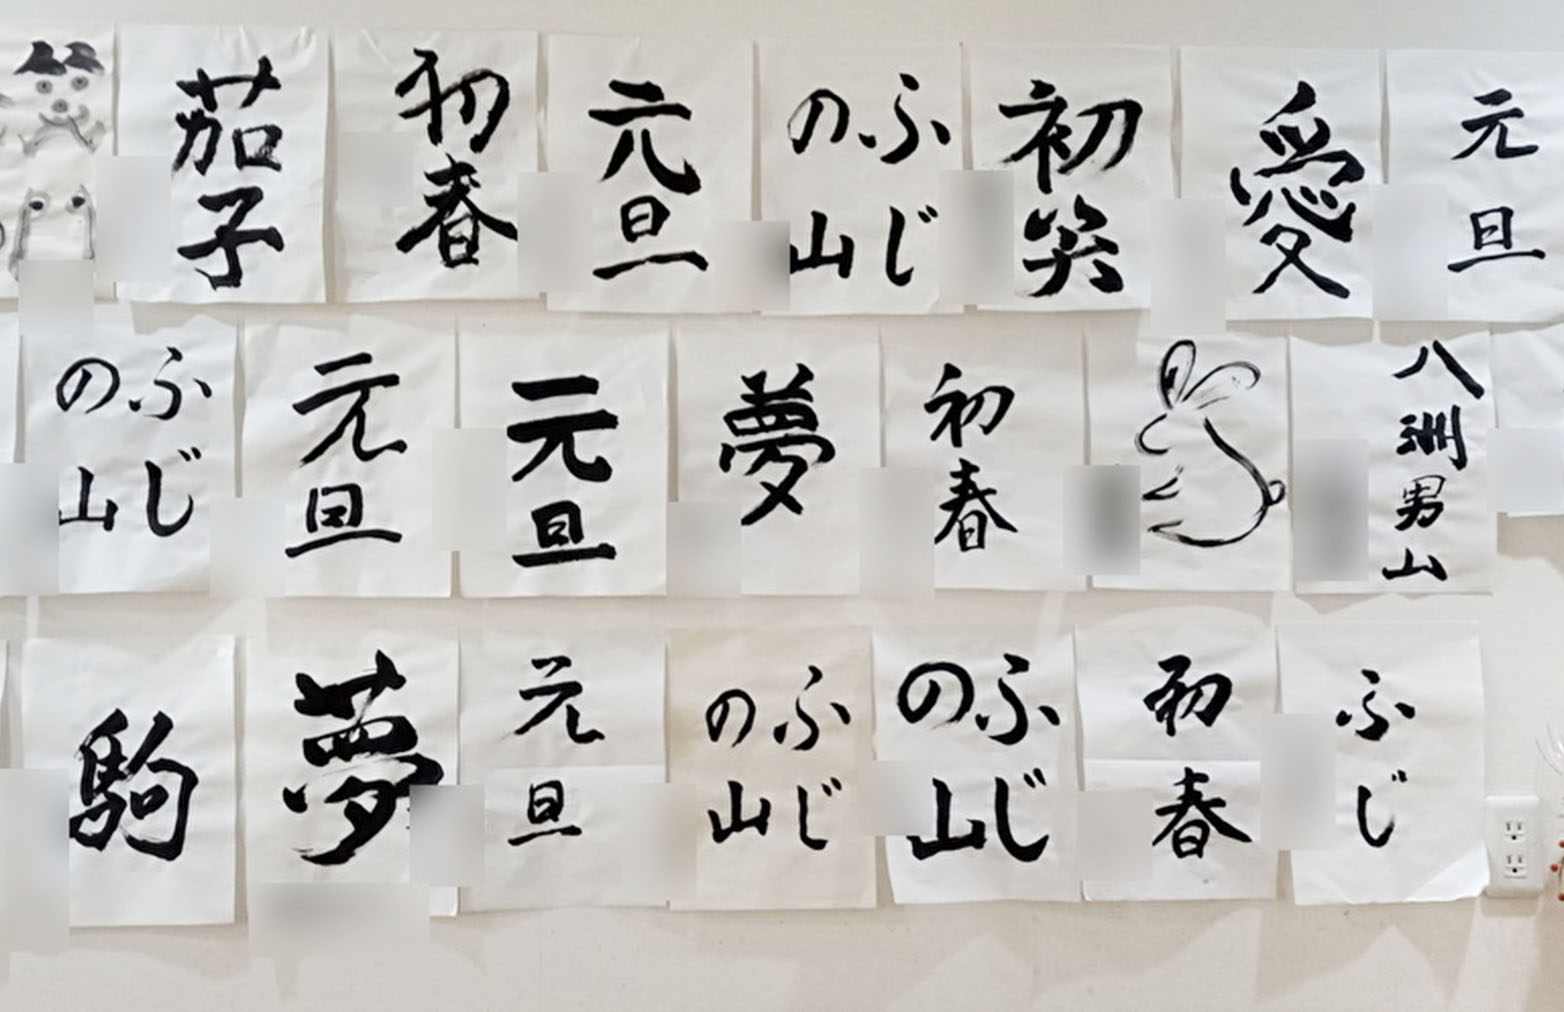 茄子
初春
元旦
ふじ
の山
初笑
愛
元旦
ふじ
の山
元旦
元旦
夢
初春
八洲男山
駒
夢
元旦
ふじ
の山
ふじ
の山
初春
ふじ